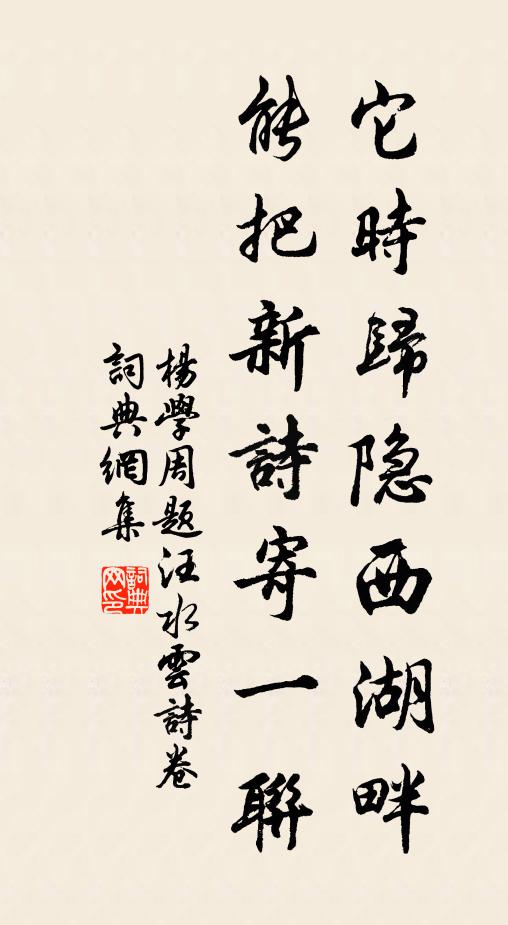 它時歸隐西湖畔
能把新詩寄一聯
楊學周題汪水雲詩卷
詞典網集
詞典網印